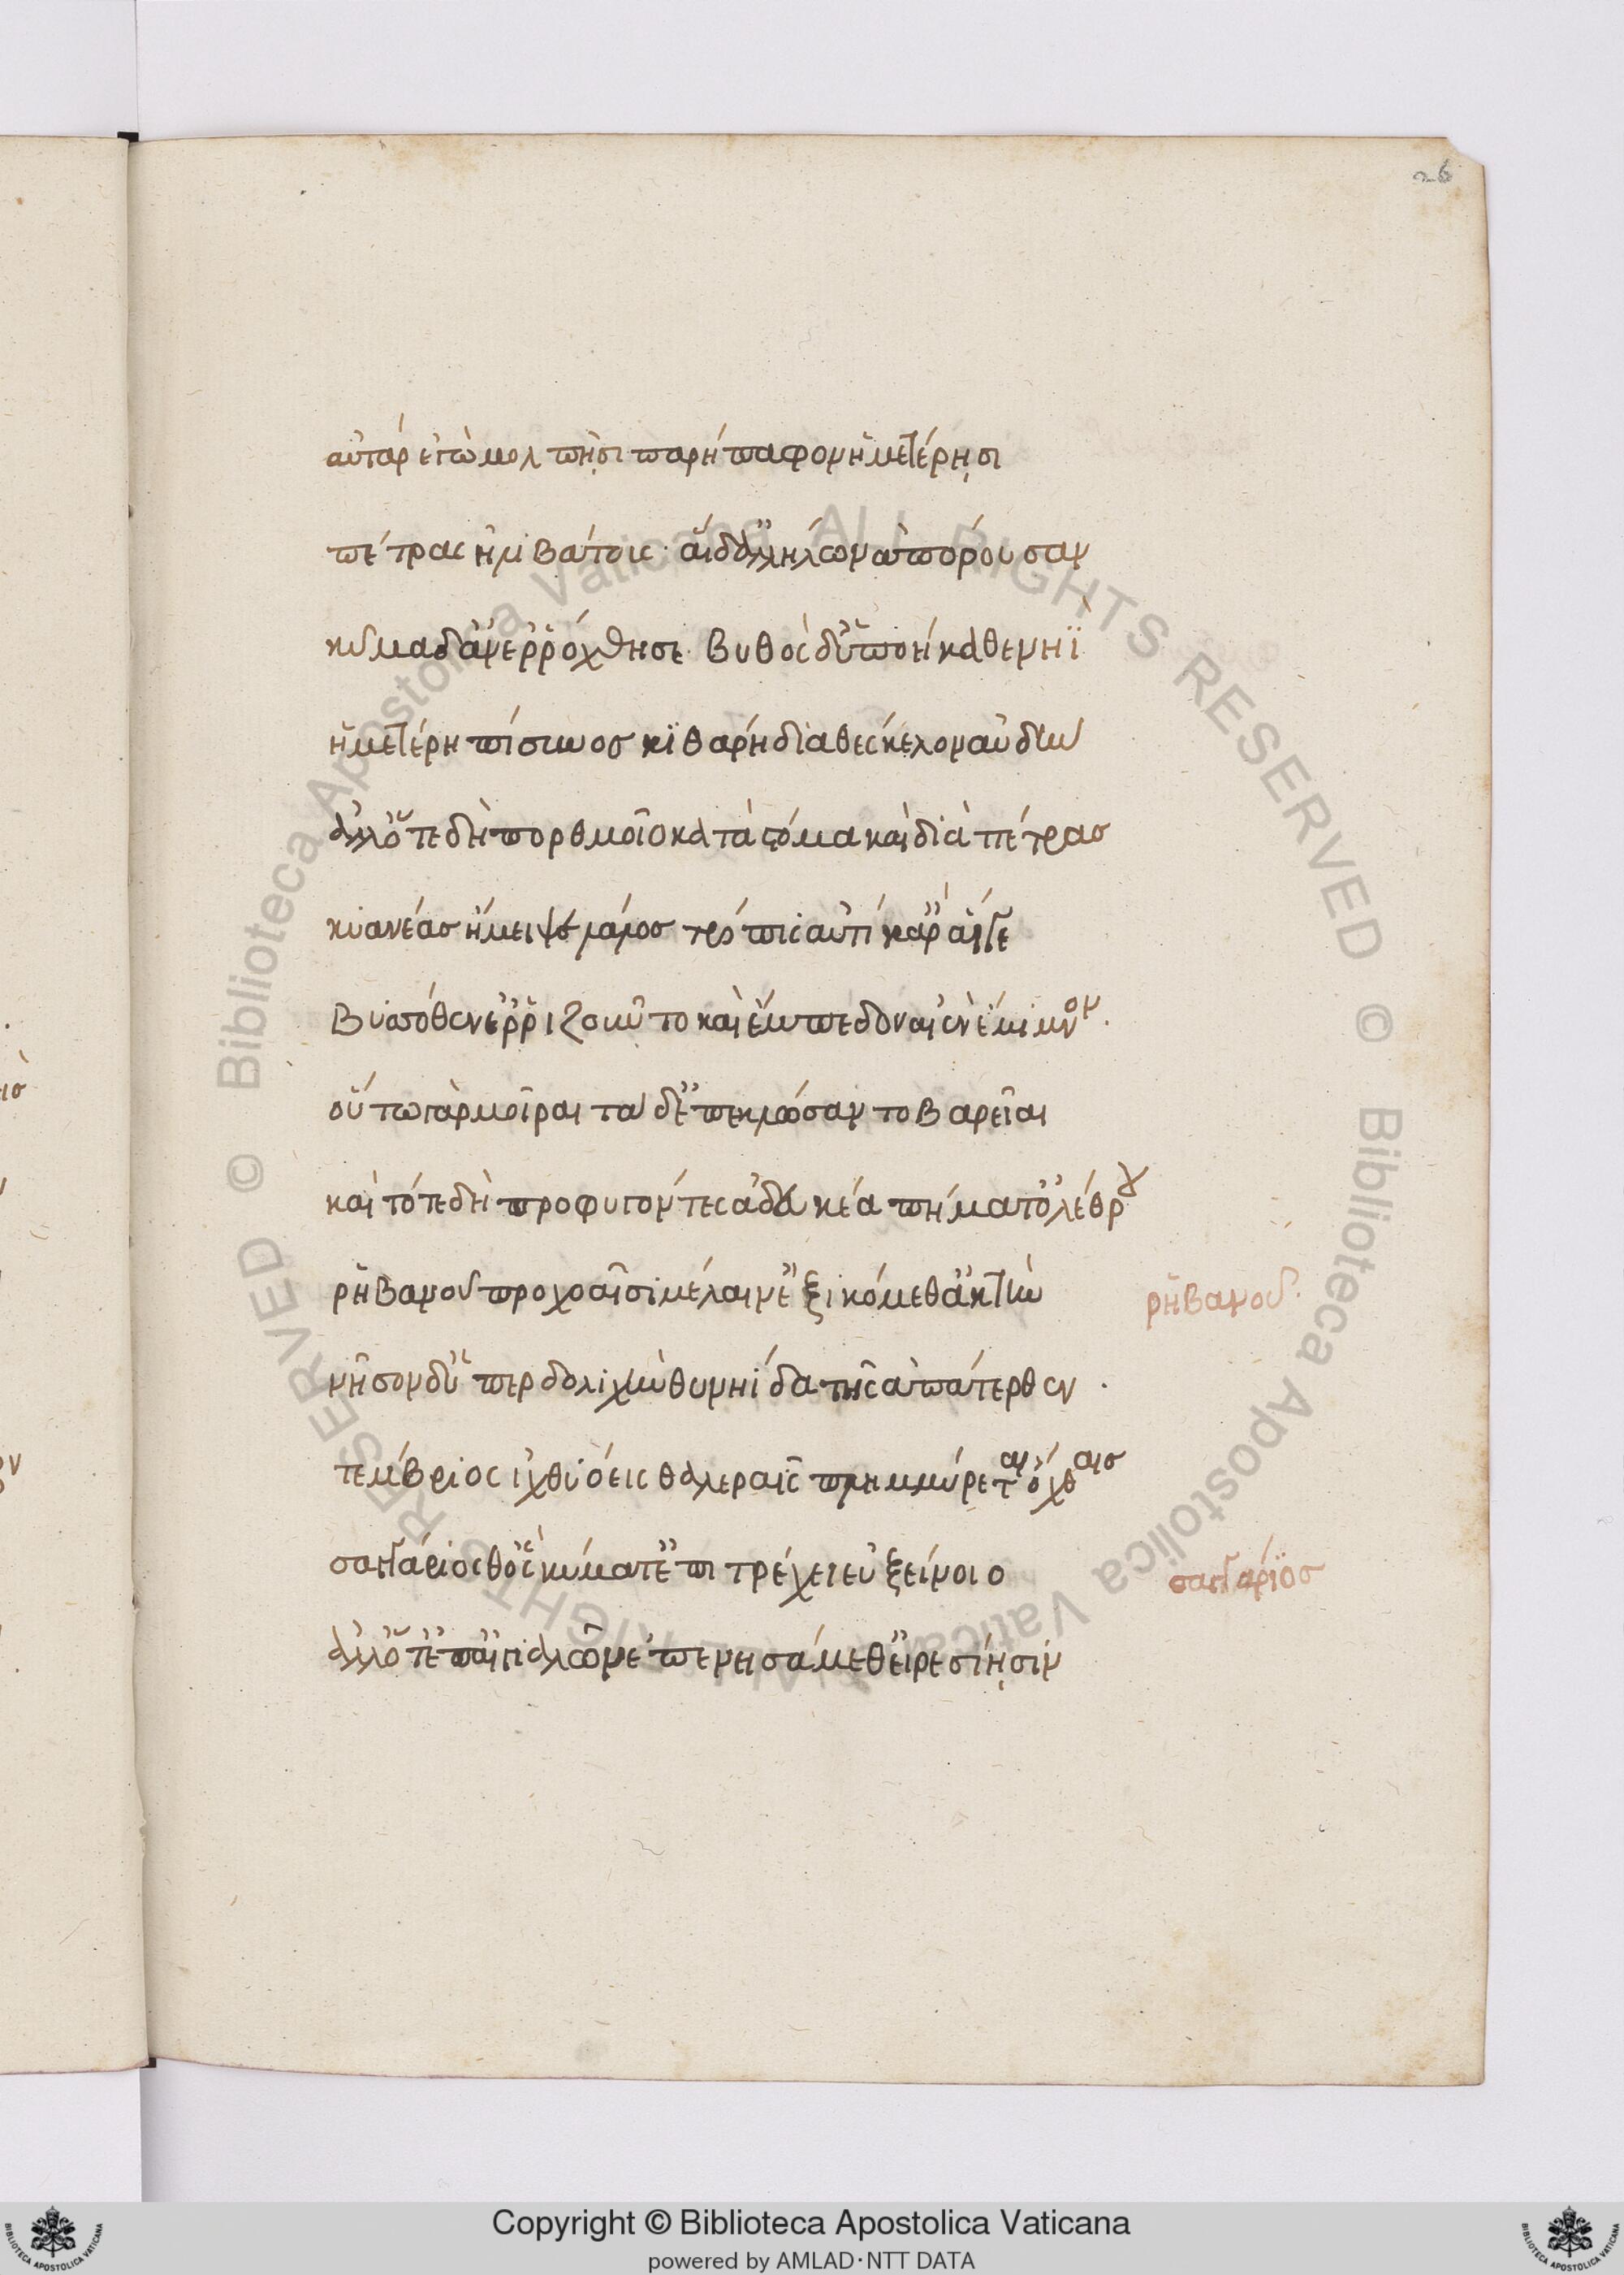 26
αὐτὰρ ἐγὼ μολπῆσι παρήπαφον ἡμετέρῃσι
πέτρας ἠλιβάτοις· αἵ δ' ἀλλήλων ἀπόρουσαν
κῦμα δ' ἀνερρόχθησε βυθὸς δ' ὑπόεικαθε νηῒ
ἡμετέρη πίσυνος κϊθάρη διὰ θέσκελον αὐδὴν
ἀλλ' ὅτε δὴ πορθμοῖο κατὰ στόμα καὶ διὰ πέτρας
κυανέας ἤμειψε λάλος τρόπις αὐτίκ' ἄρ' αἵ γε
βυσσόθεν ἐρριζοῦντο καὶ ἔμπεδον αἰὲν ἔμιμνον.
οὕτω γὰρ μοῖραι τάδ' ἐπεκλώσαντο βαρεῖαι
καὶ τότε δὴ προφυγόντες ἀδευκέα πήματ' ὀλέθρου
ρηβανοῦ προχοαῖσι μέλαιν' ἐξικόμεθ' ἀκτὴν
νῆσον δ' ὑπὲρ δολιχὴν θυνηίδα τῆς ἀπάτερθεν.
τέμβριος ἰχθυόεις θαλεραῖς πλημμύρεται ὄχθαις
σαγγάριος θ' ὃς κύματ' ἐπιτρέχει εὐξείνοιο
ἀλλ' ὅτ' ἐπ' αἰγιαλῶν ἐπενησάμεθ' εἰρεσίῃσιν
ρηβανοῦ.
σαγγάρϊος
© Biblioteca Apostolica Vaticana ALL RIGHTS RESERVED © Biblioteca Apostolica Vaticana ALL RIGHTS RESERVED
Copyright © Biblioteca Apostolica Vaticana
powered by AMLAD·NTT DATA